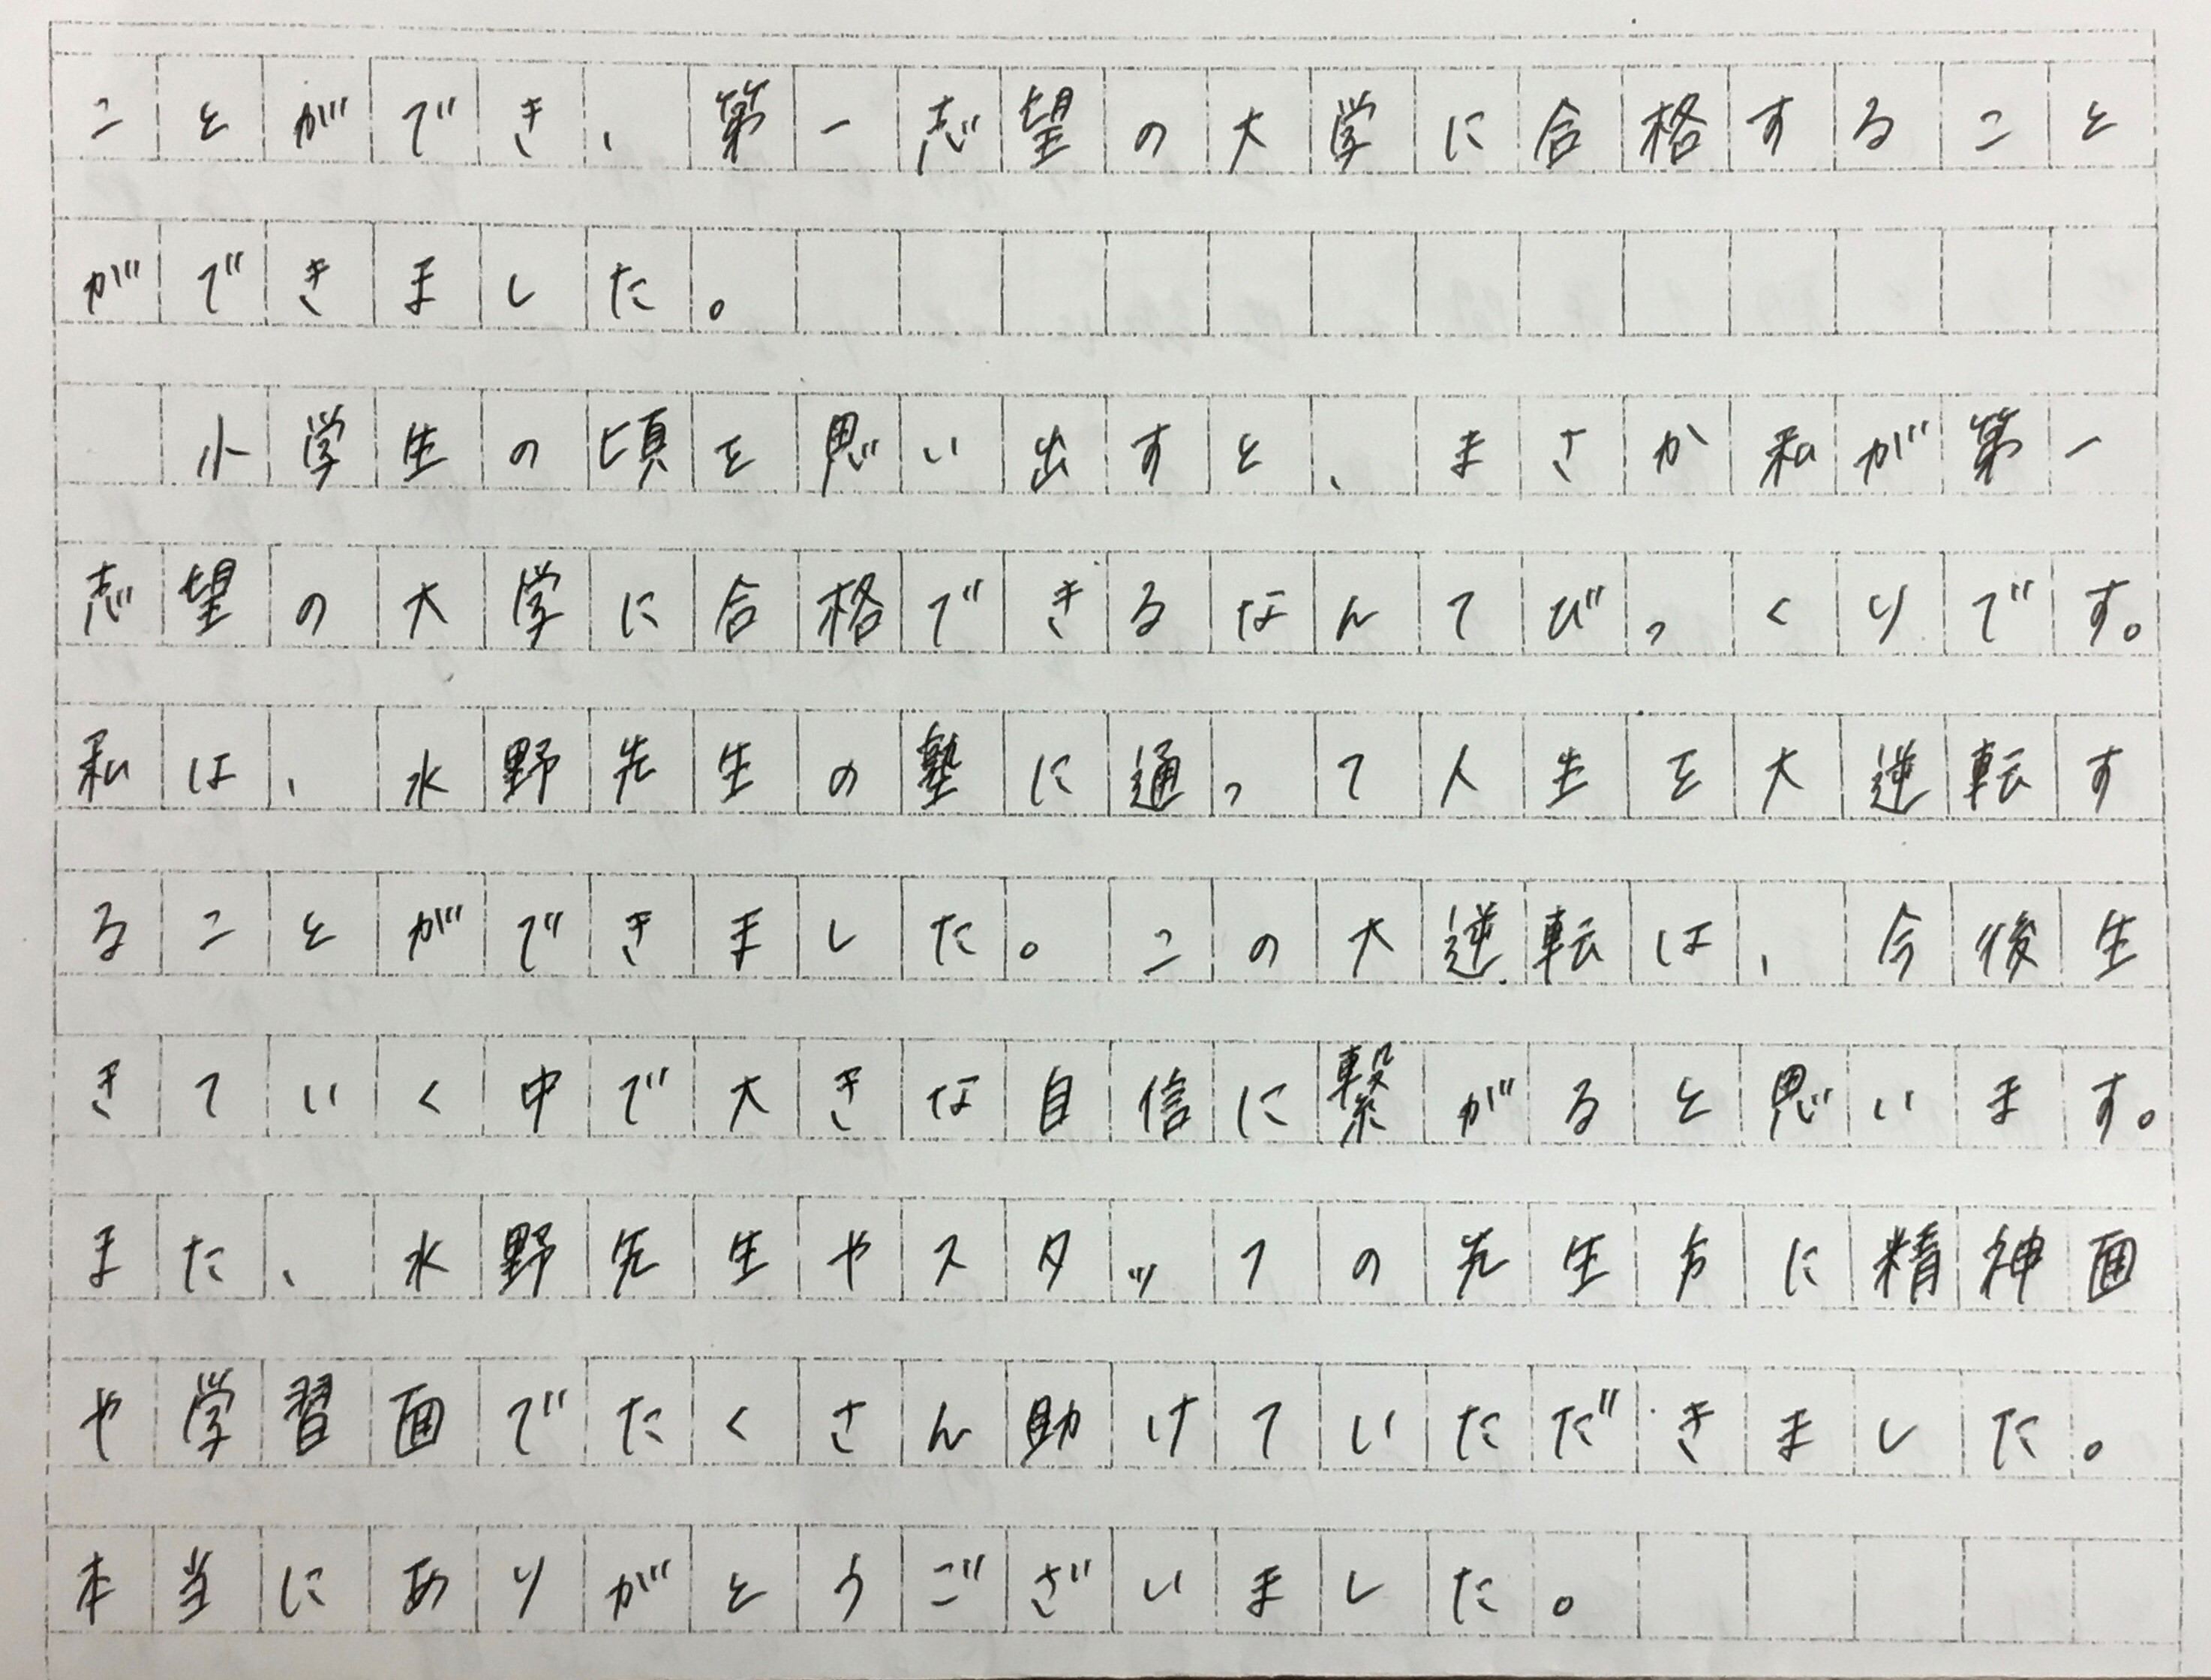 ことができ、第一志望の大学に合格すること
ができました。
　小学生の頃を思い出すと、まさか私が第一
志望の大学に合格できるなんてびっくりです。
私は、水野先生の塾に通って人生を大逆転す
ることができました。この大逆転は、今後生
きていく中で大きな自信に繋がると思います。
また、水野先生やスタッフの先生方に精神面
や学習面でたくさん助けていただきました。
本当にありがとうございました。